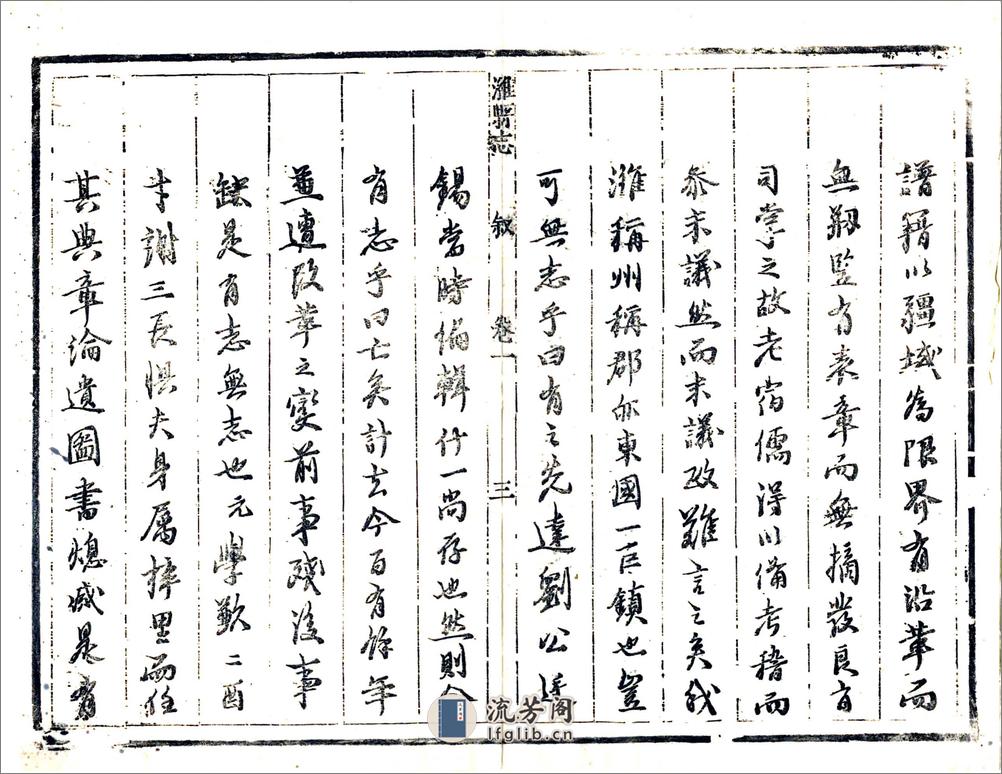 譜籍以疆域為限界有沿革而
無剏竪有表章而無摘發良有
司掌之故老宿儒得以備考稽而
参末議然而末議政難言之矣我
濰稱州稱郡亦東國一巨鎮也豈
可無志乎曰有之先達劉公廷
濰縣志 叙 卷一 三
錫當時編輯什一尚存也然則今
有志乎曰亡矣計去今百有餘年
並遭改革之變前事殘後事
缺是有志無志也元學歉二酉
才謝三長惧夫身属梓里而任
其典章淪遺圖書熄滅是有
流芳阁
lfglib.cn